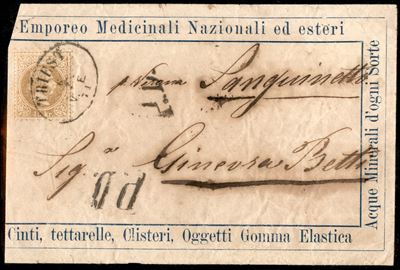 Emporeo Medicinali Nazionali ed esteri
TRIEST
Sanguinetto
Sig.ª Ginevra Betti
PD
Cinti, tettarelle, Clisteri, Oggetti Gomma Elastica
Acque Minerali d'ogni Sorte